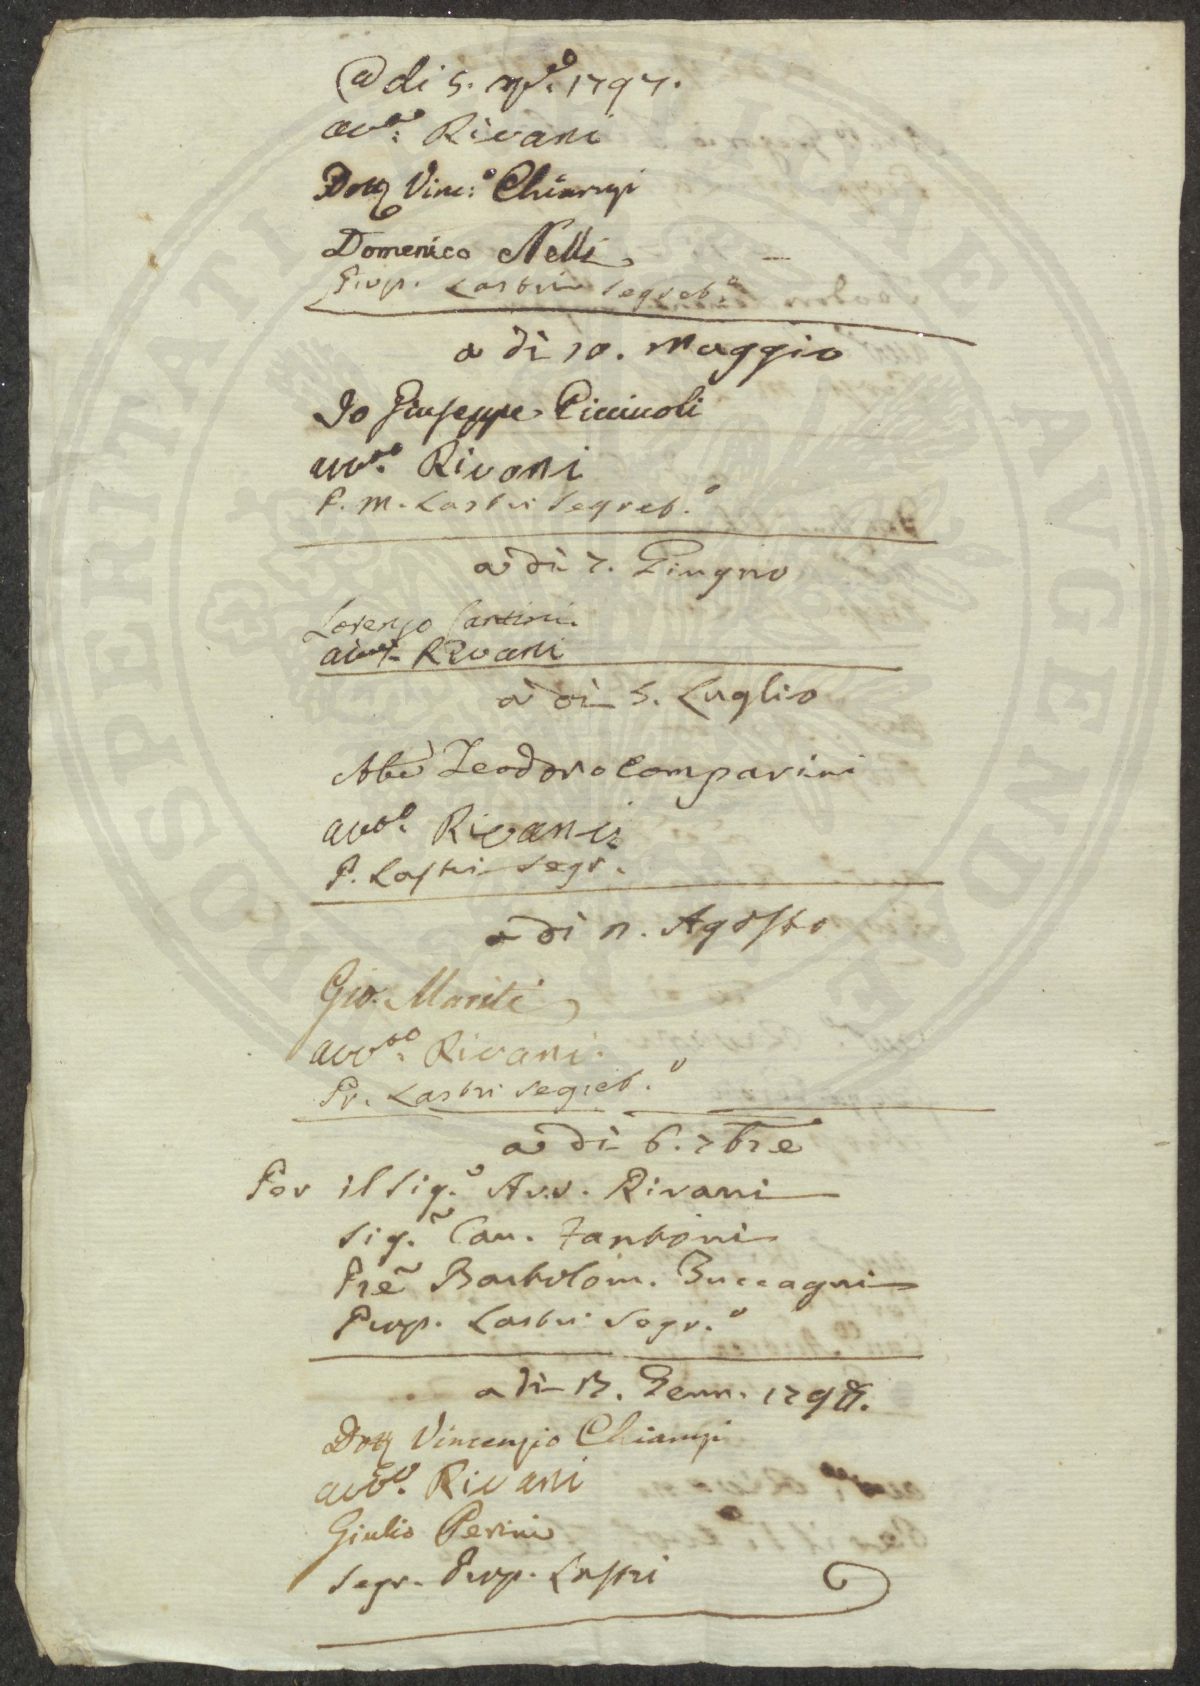 a di 5. ap.e 1797.
avv.to Rivani
Dott Vinc.o Chiarugi
Domenico Nelli
Prop. Lastri Segret.o
a dì 10. Maggio
Io Giuseppe Piccivoli
avv.to Rivani
P. M. Lastri Segret.o
a dì 7. Giugno
Lorenzo Cantini.
avv.to Rivani
a dì 5. Luglio
Abe Teodoro Comparini
avv.o Rivani
P. Lastri Segr.
a dì 11. Agosto
Gio. Mariti
avv.to Rivani.
Pr. Lastri Segret.o
a dì 6. 7bre
Per il Sig.r Avv. Rivani
Sig.r Can. Fantoni
Pre Bartolom. Buccagni
Prop. Lastri Segr.o
a dì 17. Genn. 1798.
Dott Vincenzio Chiarugi
avv.to Rivani
Giulio Perini
Segr. Prop. Lastri
PROSPERITATI PUBLICAE AUGENDAE